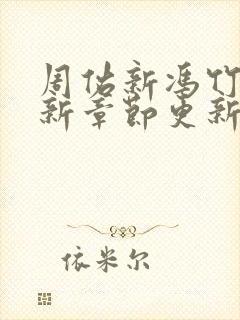 周佑新冯竹
新章节更新
依米尔